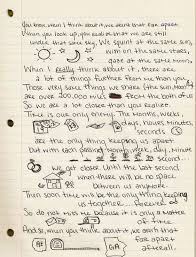 You know when I think about it, we aren't that far apart
When you look up you realize that we are still
under that same sky. We squint at the same sun,
wish on the same stars,
gaze at the same moon,
When I really think about it there are a
lot of things further from me than you.
Those very same things we share (sun, moon)
are over 200,000 miles from the both of us
So we are a lot closer than you realize
Time is our only enemy. The Months, Weeks
days, hours, minutes,
seconds
are the only thing keeping us apart
But with each passing
we get closer. Until the last second
when there will be no space
between us anymore
Then soon time will be the only thing keeping
us together... Forever
So do not miss me because it is only a matter
of time.
And so, when you think about it we aren't that
far apart
afterall.